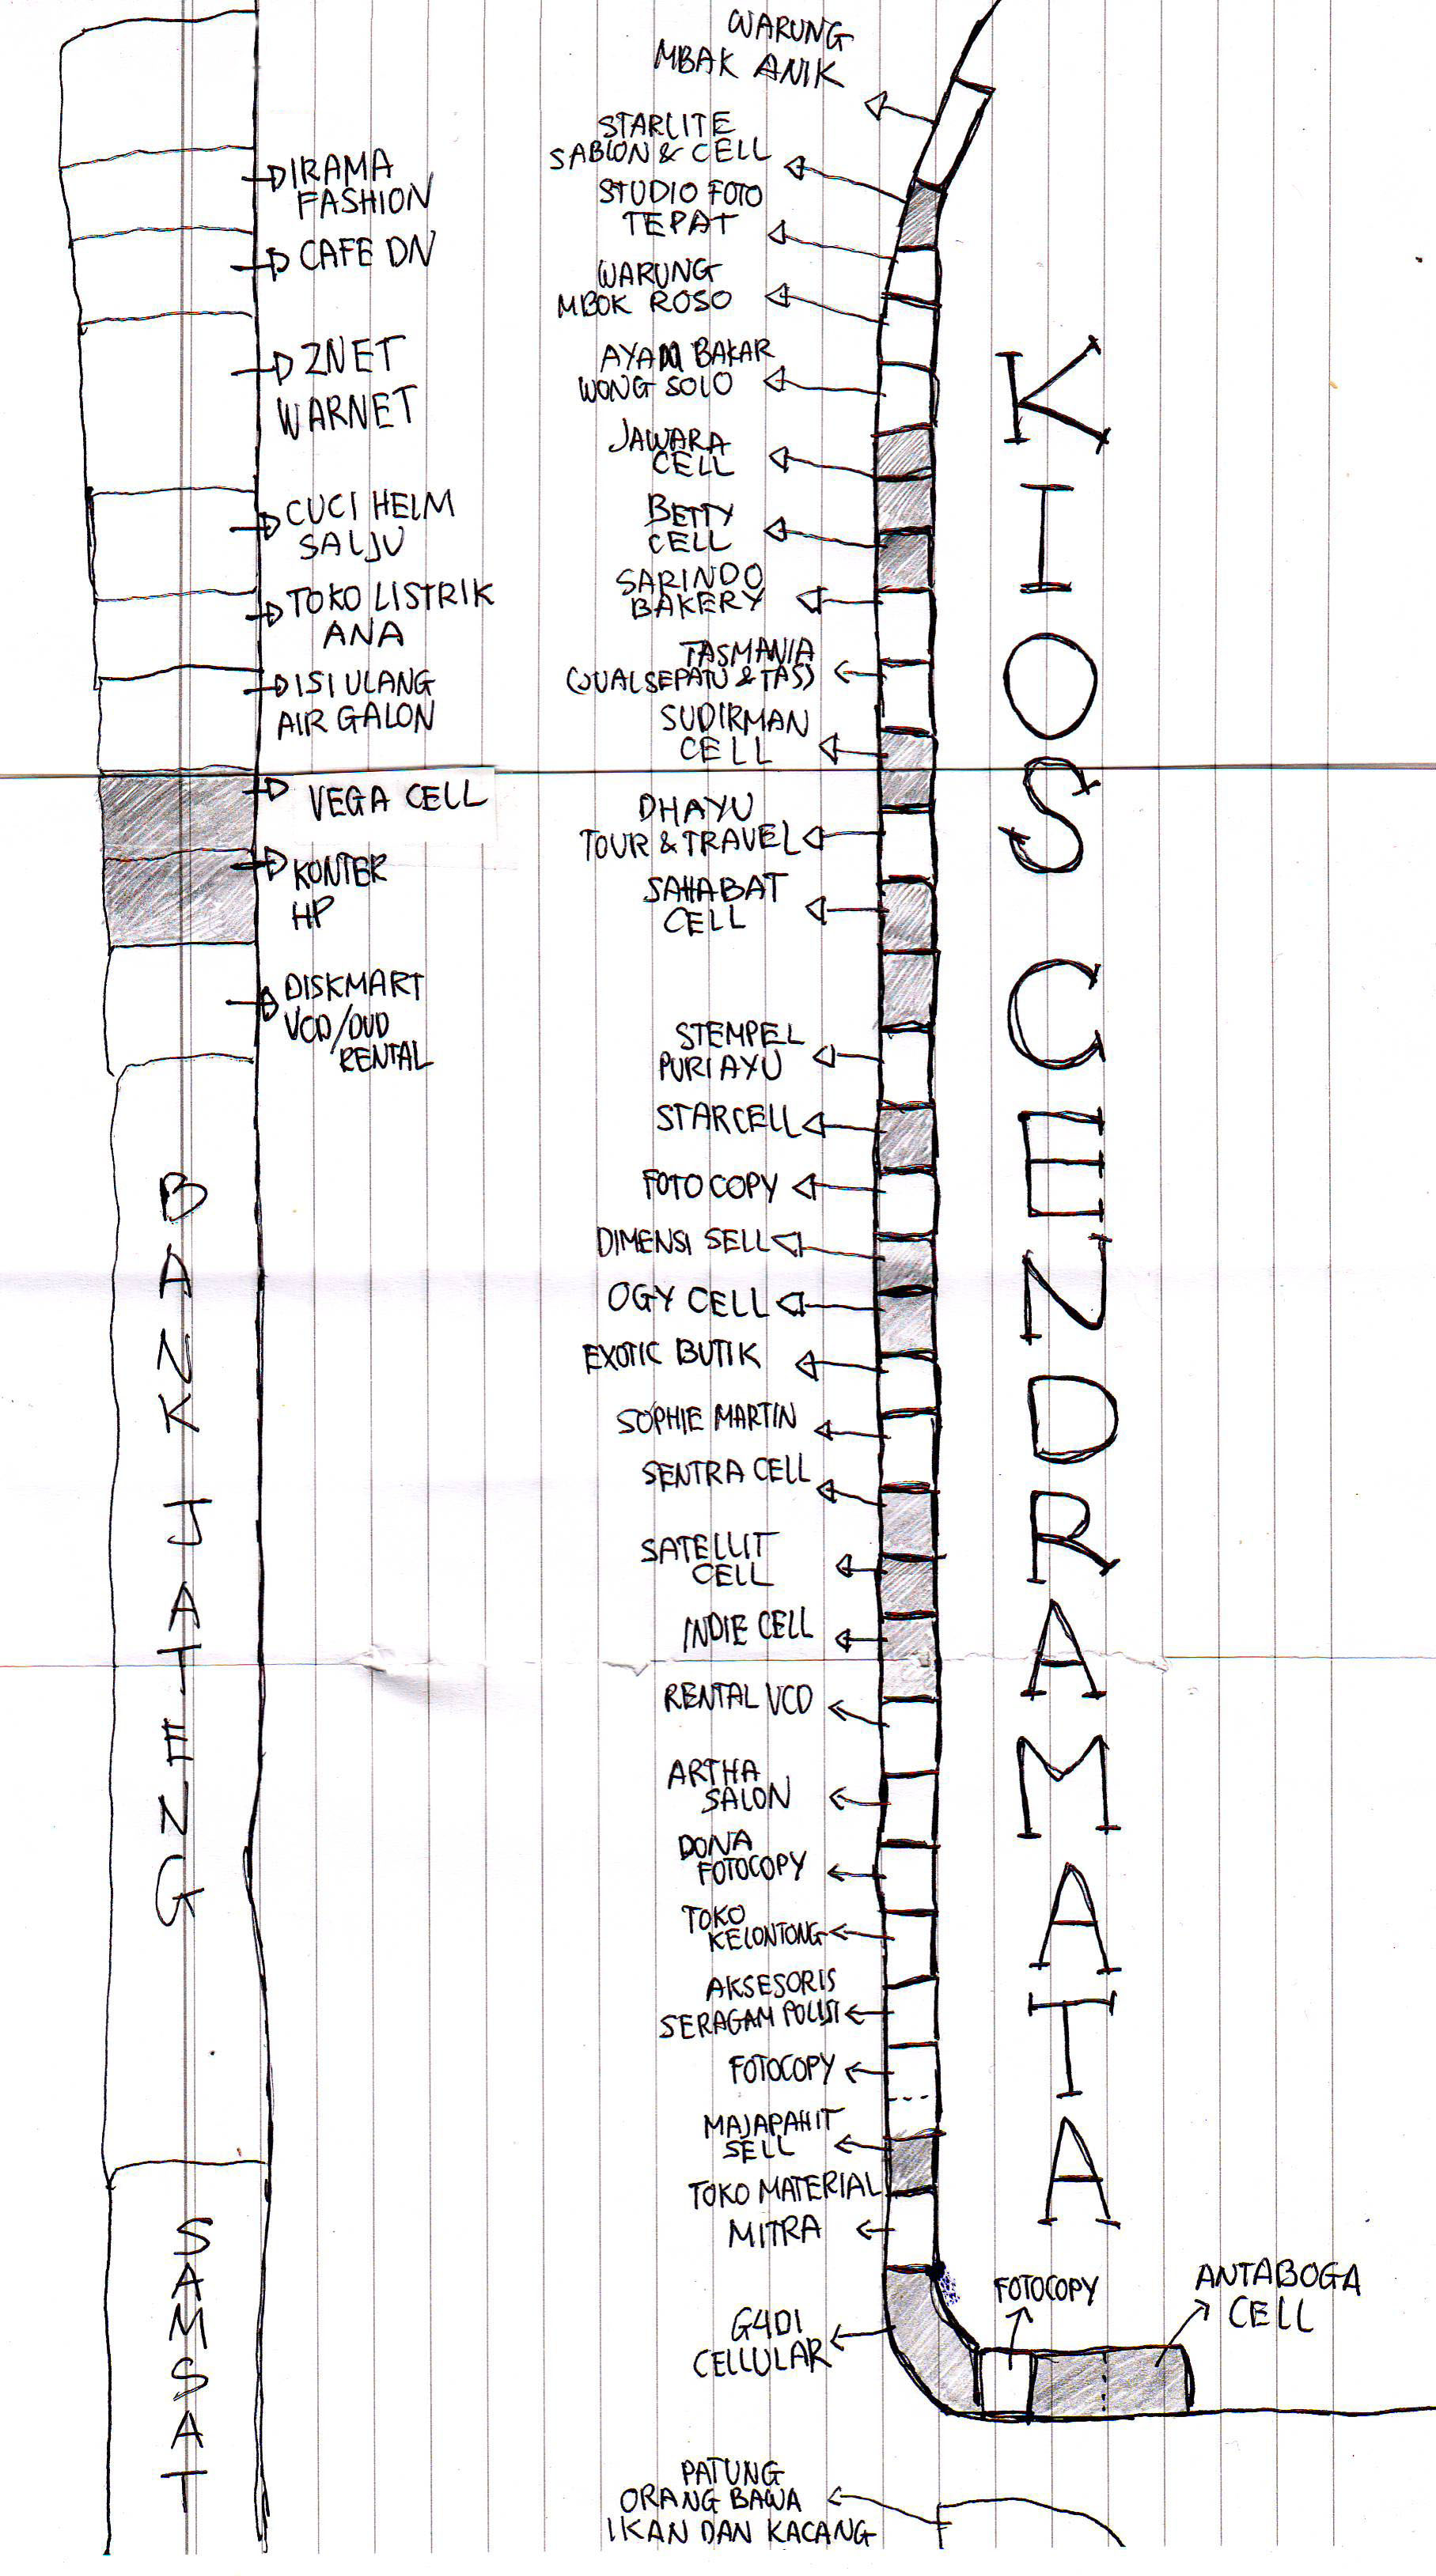 IRAMA
FASHION
CAFE DN
ZNET
WARNET
CUCI HELM
SALJU
TOKO LISTRIK
ANA
ISI ULANG
AIR GALON
VEGA CELL
KONTER
HP
DISKMART
VCD/DVD
RENTAL
BANK JATENG
SAMSAT
WARUNG
MBAK ANIK
STARLITE
SABLON & CELL
STUDIO FOTO
TEPAT
WARUNG
MBOK ROSO
AYAM BAKAR
WONG SOLO
JAWARA
CELL
BETTY
CELL
SARINDO
BAKERY
TASMANIA
(JUAL SEPATU & TAS)
SUDIRMAN
CELL
DHAYU
TOUR & TRAVEL
SAHABAT
CELL
STEMPEL
PURI AYU
STARCELL
FOTO COPY
DIMENSI SELL
OGY CELL
EXOTIC BUTIK
SOPHIE MARTIN
SENTRA CELL
SATELLIT
CELL
INDIE CELL
RENTAL VCD
ARTHA
SALON
DONA
FOTOCOPY
TOKO
KELONTONG
AKSESORIS
SERAGAM POLISI
FOTOCOPY
MAJAPAHIT
SELL
TOKO MATERIAL
MITRA
G4DI
CELLULAR
FOTOCOPY
ANTABOGA
CELL
PATUNG
ORANG BAWA
IKAN DAN KACANG
KIOS CENDRAMATA